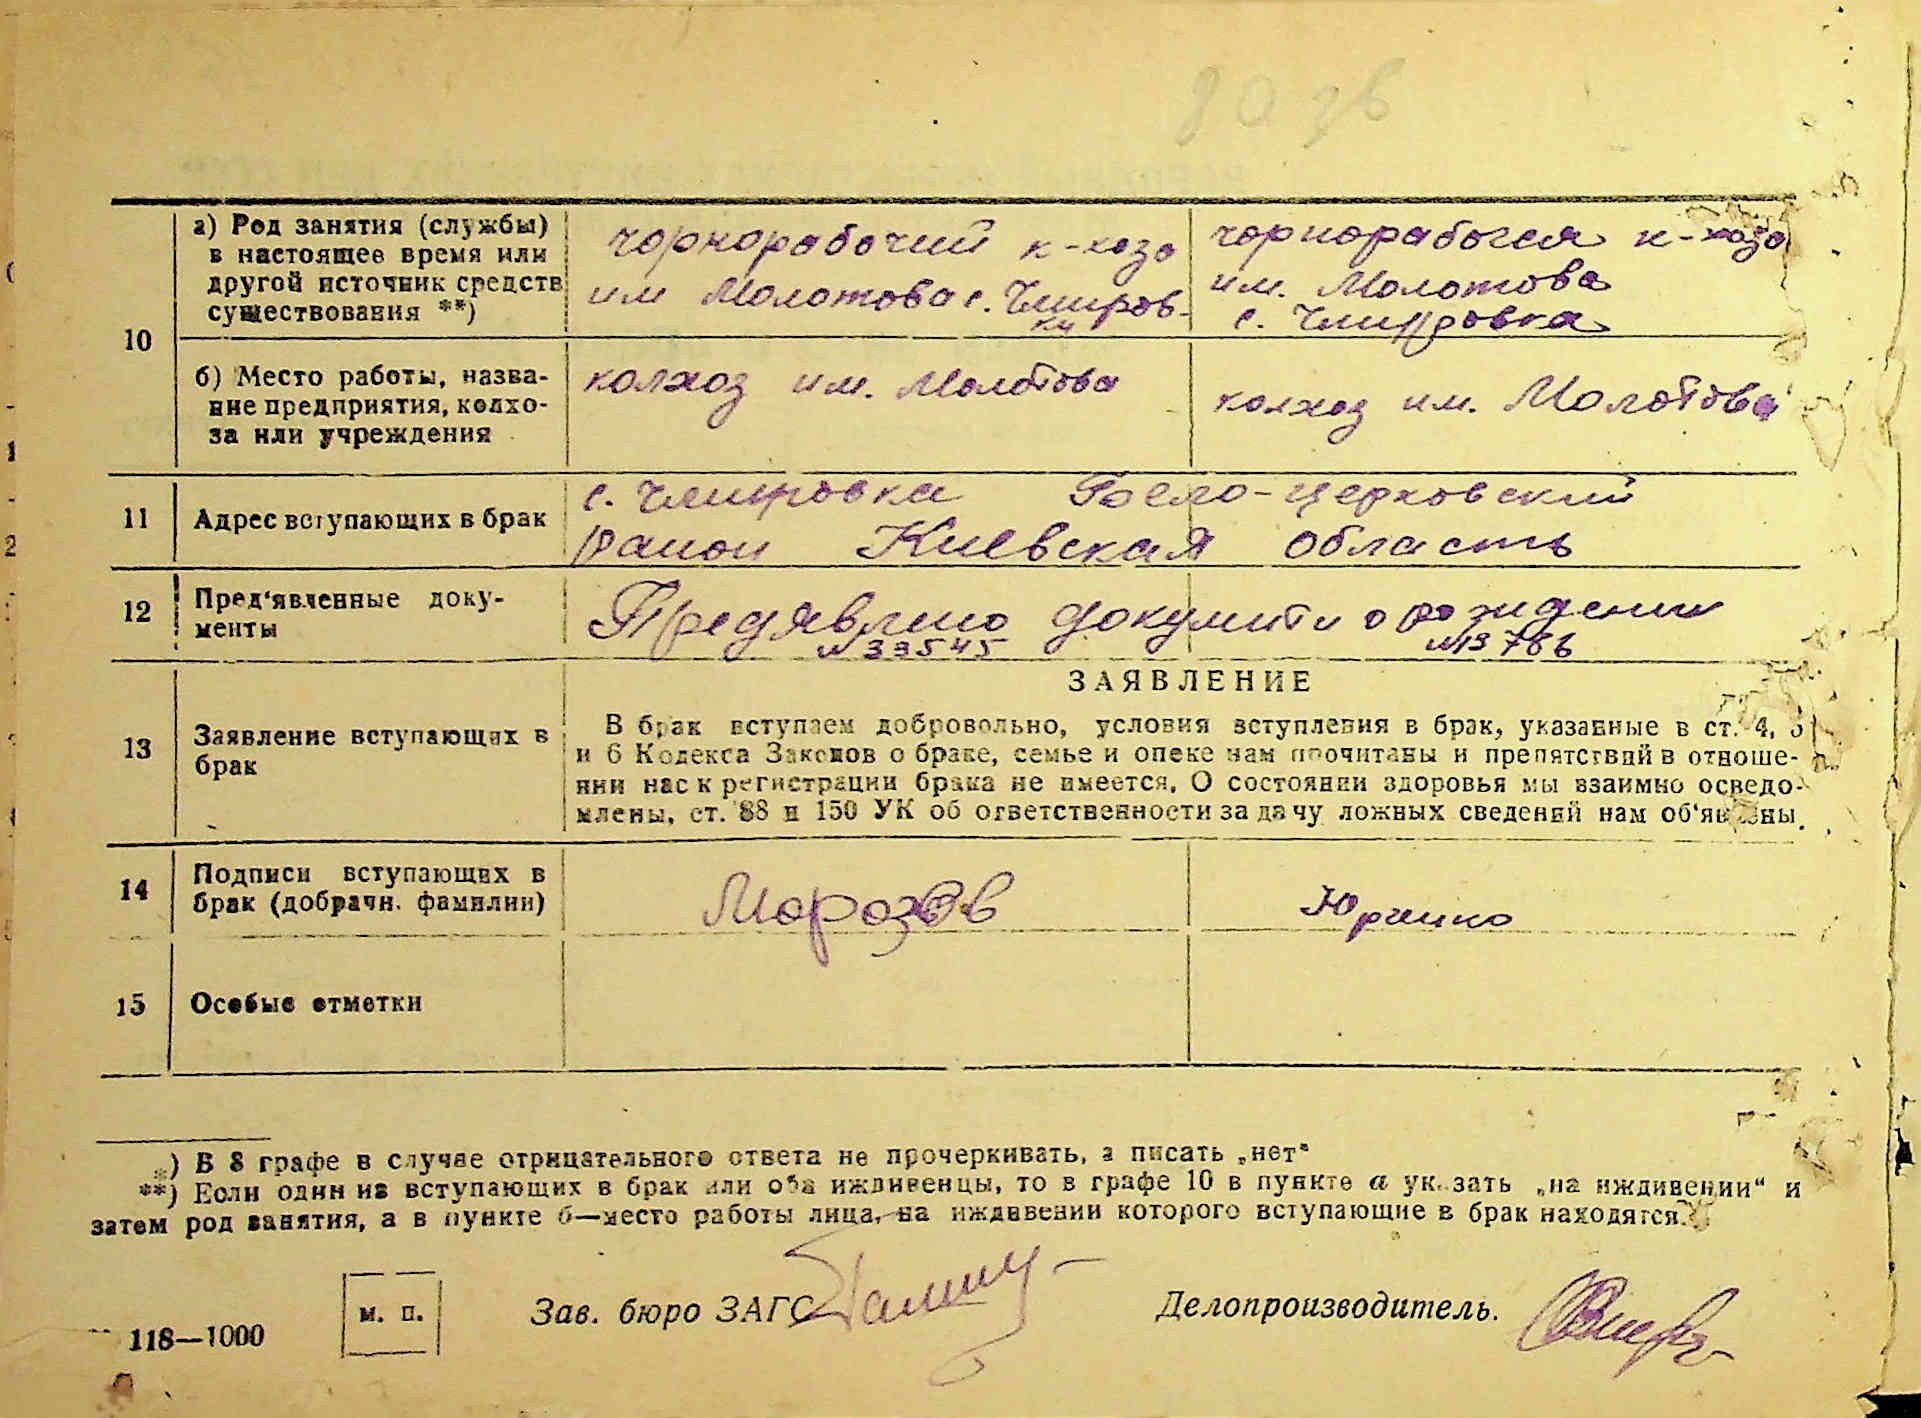 80 зв
10
а) Род занятия (службы) в настоящее время или другой источник средств существования **)
чорнорабочий к-хоза
им Молотова с. Чмыров-
ки
чорнорабочая к-хоза
им. Молотова
с. Чмыровка
б) Место работы, назва-
ние предприятия, колхо-
за или учреждения
колхоз им. Молотова
колхоз им. Молотова
11
Адрес вступающих в брак
с. Чмыровка Бело-церковский
район Киевская область
12
Пред'явленные доку-
менты
Предявлено докумити о рождении
№ 33545
№ 13766
13
Заявление вступающих в
брак
ЗАЯВЛЕНИЕ
В брак вступаем добровольно, условия вступления в брак, указанные в ст. 4, 5
и 6 Кодекса Законов о браке, семье и опеке нам прочитаны и препятствий в отноше-
нии нас к регистрации брака не имеется. О состоянии здоровья мы взаимно осведо-
млены, ст. 88 и 150 УК об ответственности за дачу ложных сведений нам об'явлены.
14
Подписи вступающих в
брак (добрачн. фамилии)
Морозов
Юрченко
15
Особые отметки
*) В 8 графе в случае отрицательного ответа не прочеркивать, а писать „нет"
**) Если один из вступающих в брак или оба иждивенцы, то в графе 10 в пункте а указать „на иждивении" и
затем род занятия, а в пункте б—место работы лица, на иждивении которого вступающие в брак находятся.
м. п.
Зав. бюро ЗАГС
Делопроизводитель.
118—1000